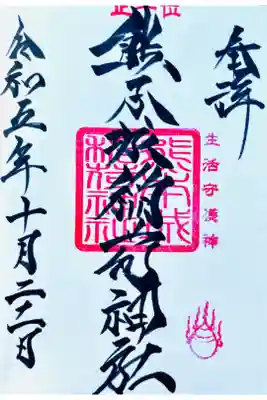 奉拝
生活守護神
正一位
稲荷神社
令和五年十月二十一日